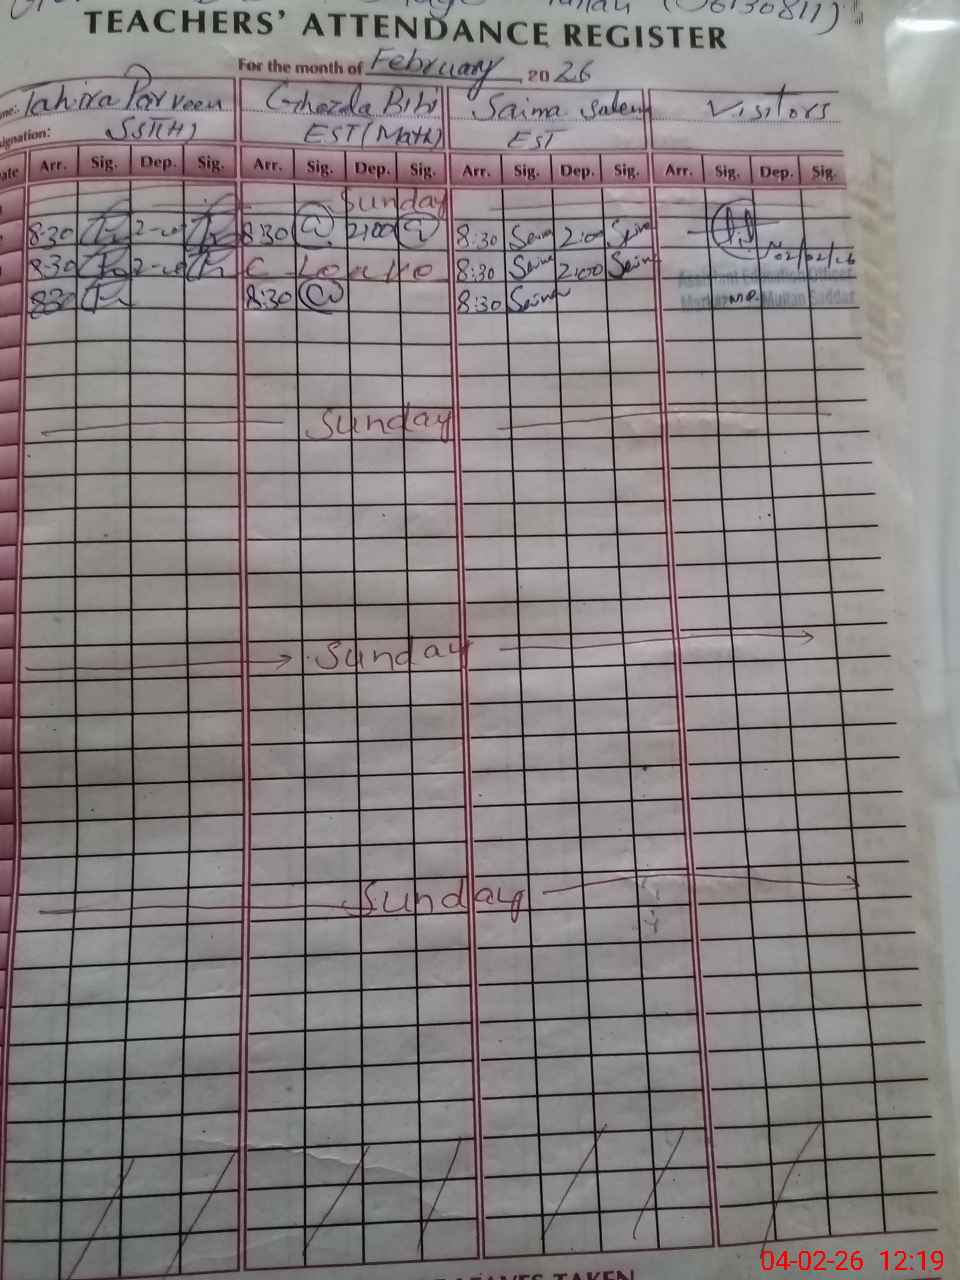 (06130811)
TEACHERS' ATTENDANCE REGISTER
For the month of February, 2026
Tahira Parveen Ghazala Bibi Saima Saleem Visitors
SST(H) EST(Math) EST
Arr. Sig. Dep. Sig. Arr. Sig. Dep. Sig. Arr. Sig. Dep. Sig. Arr. Sig. Dep. Sig.
Sunday
8:30 2-00 8:30 2:00 8:30 Saima 2:00 Saima
02/02/26
8:30 2-00 C Leave 8:30 Saima 2:00 Saima
Assistant Education Officer
8:30 8:30 8:30 Saima
Markaz Multan Saddar
Sunday
Sunday
Sunday
04-02-26 12:19
LEAVES TAKEN